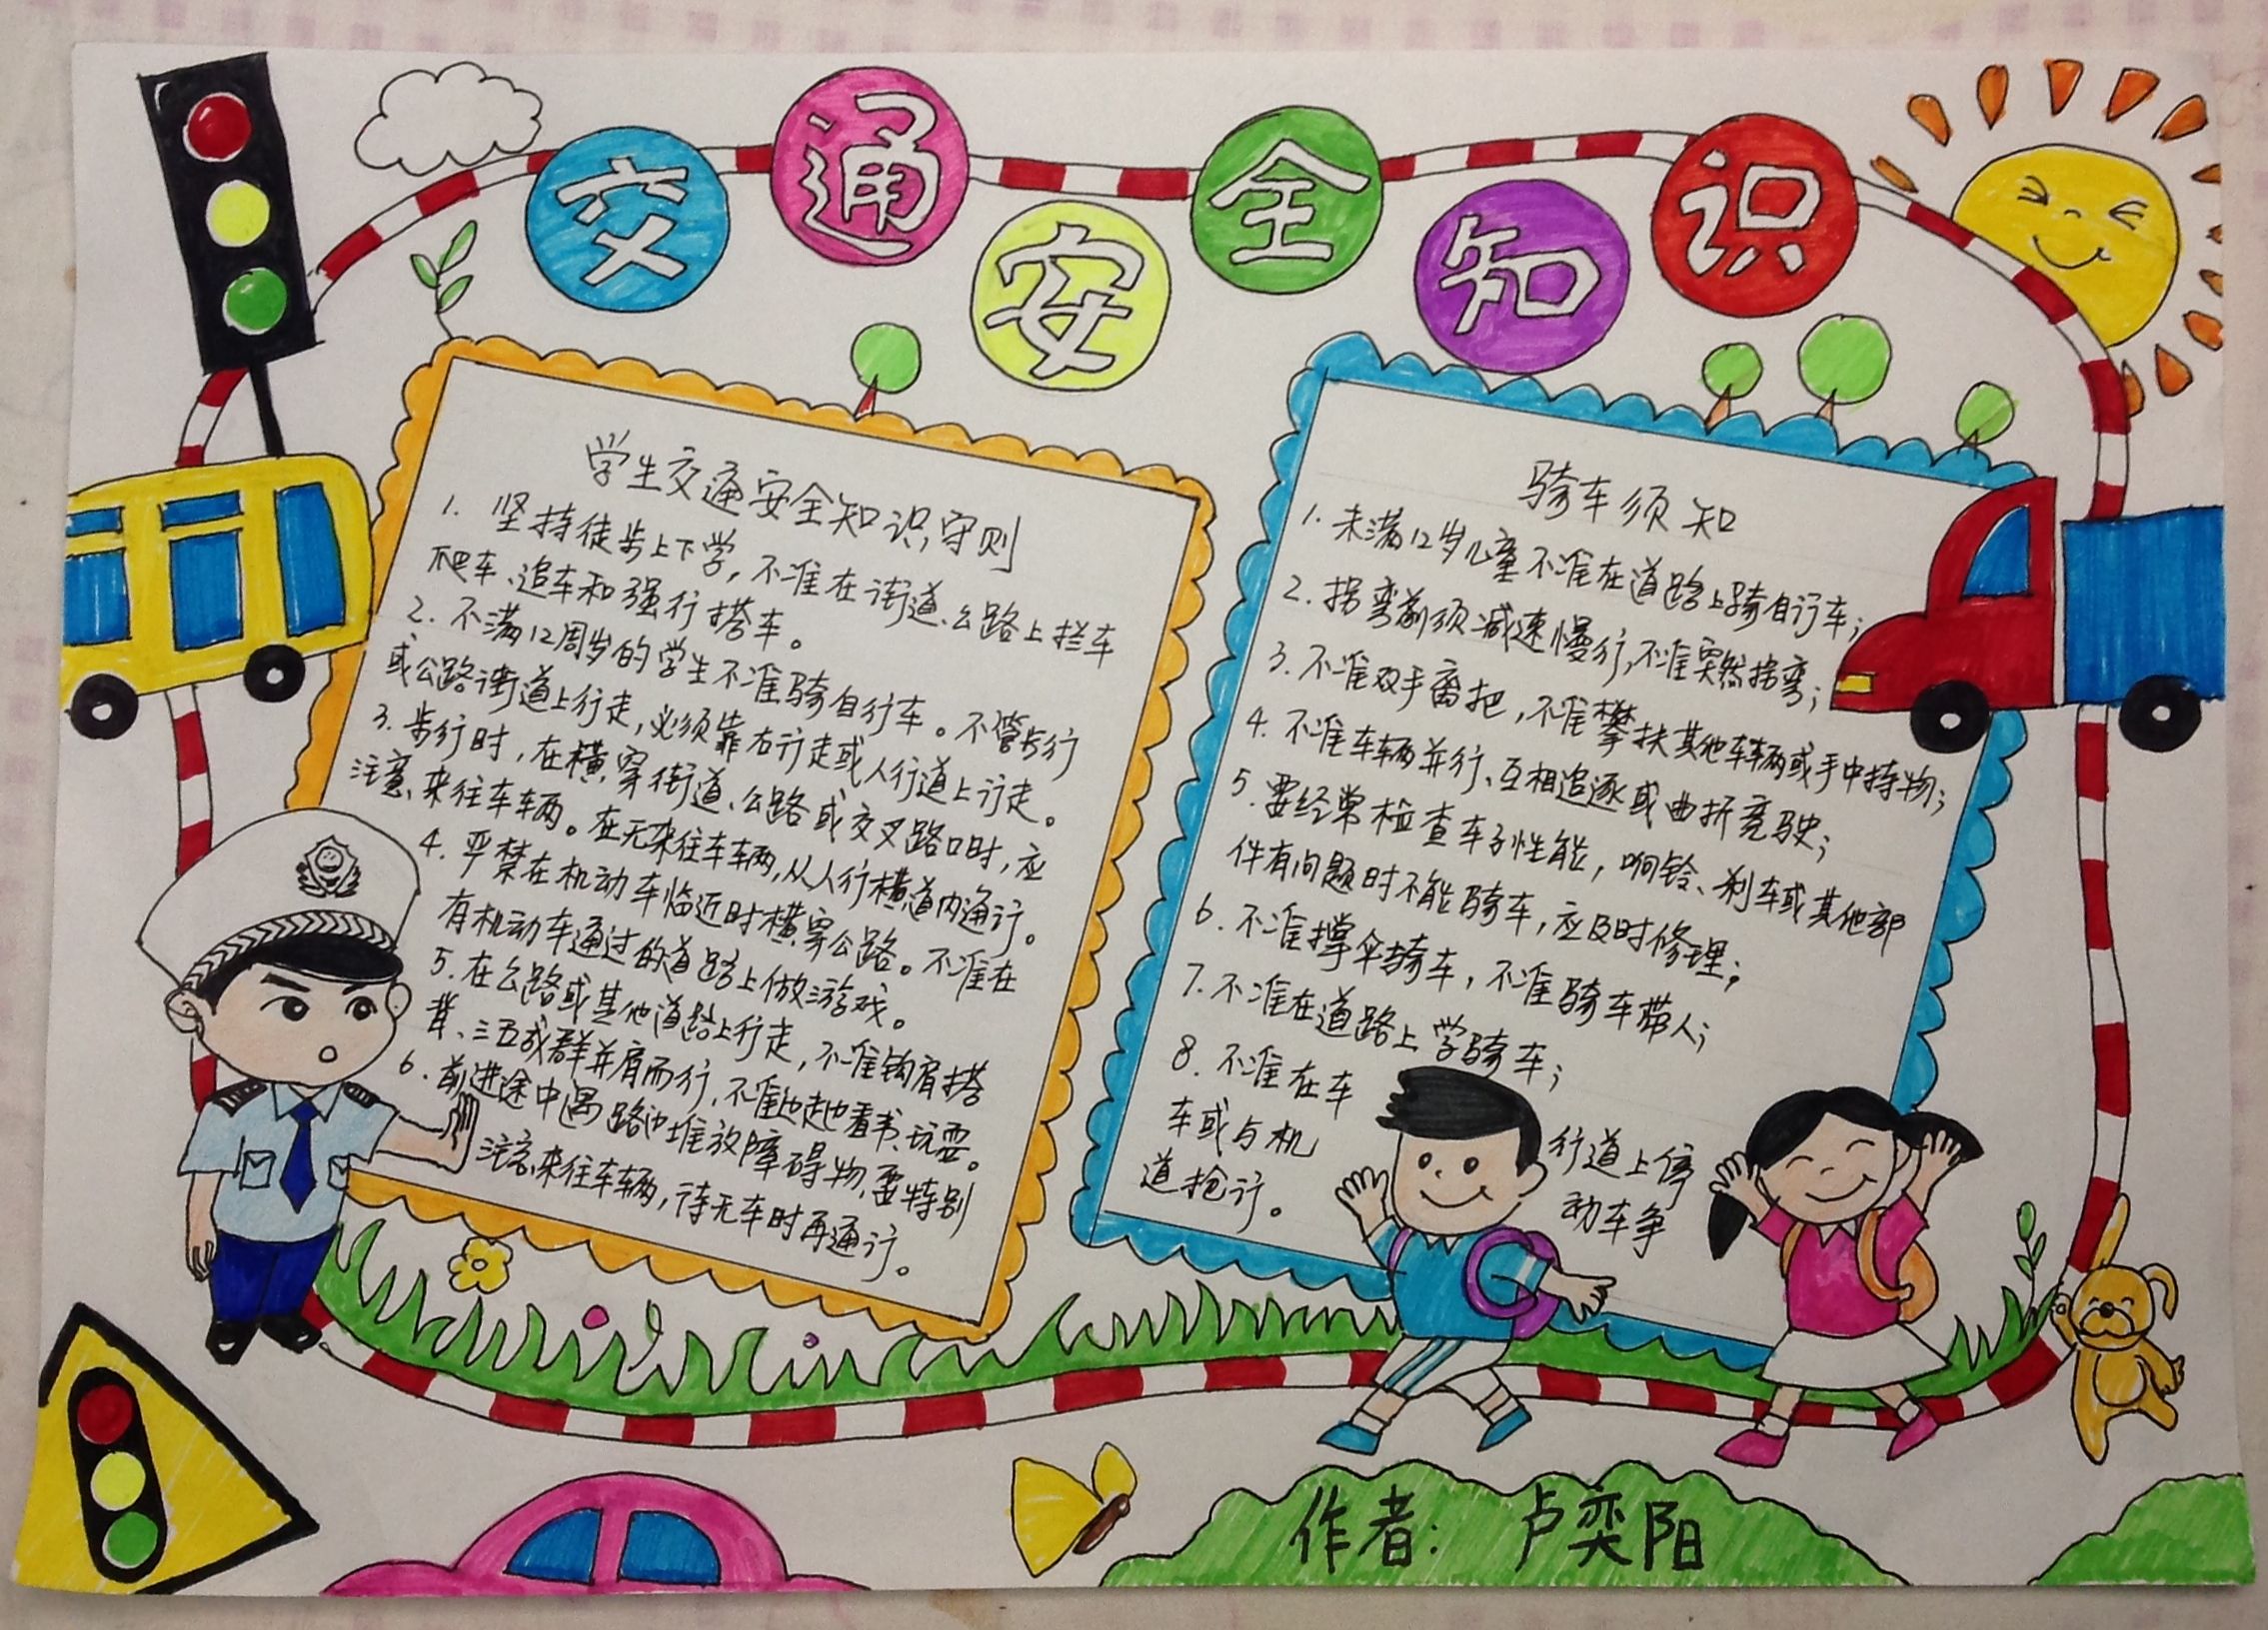 交通安全知识
学生交通安全知识守则
1. 坚持徒步上下学，不准在街道、公路上拦车
爬车、追车和强行搭车。
2. 不满12周岁的学生不准骑自行车。不管步行
或公路街道上行走，必须靠右行走或人行道上行走。
3. 步行时，在横穿街道、公路或交叉路口时，应
注意来往车辆。在无来往车辆，从人行横道内通行。
4. 严禁在机动车临近时横穿公路。不准在
有机动车通过的道路上做游戏。
5. 在公路或其他道路上行走，不准钩肩搭
背、三五成群并肩而行，不准边走边看书、玩耍。
6. 前进途中遇路边堆放障碍物，要特别
注意来往车辆，待无车时再通行。
骑车须知
1. 未满12岁儿童不准在道路上骑自行车；
2. 拐弯前须减速慢行，不准突然拐弯；
3. 不准双手离把，不准攀扶其他车辆或手中持物；
4. 不准车辆并行、互相追逐或曲折竞驶；
5. 要经常检查车子性能，响铃、刹车或其他部
件有问题时不能骑车，应及时修理；
6. 不准撑伞骑车，不准骑车带人；
7. 不准在道路上学骑车；
8. 不准在车行道上停
车或与机动车争
道抢行。
作者：卢奕阳